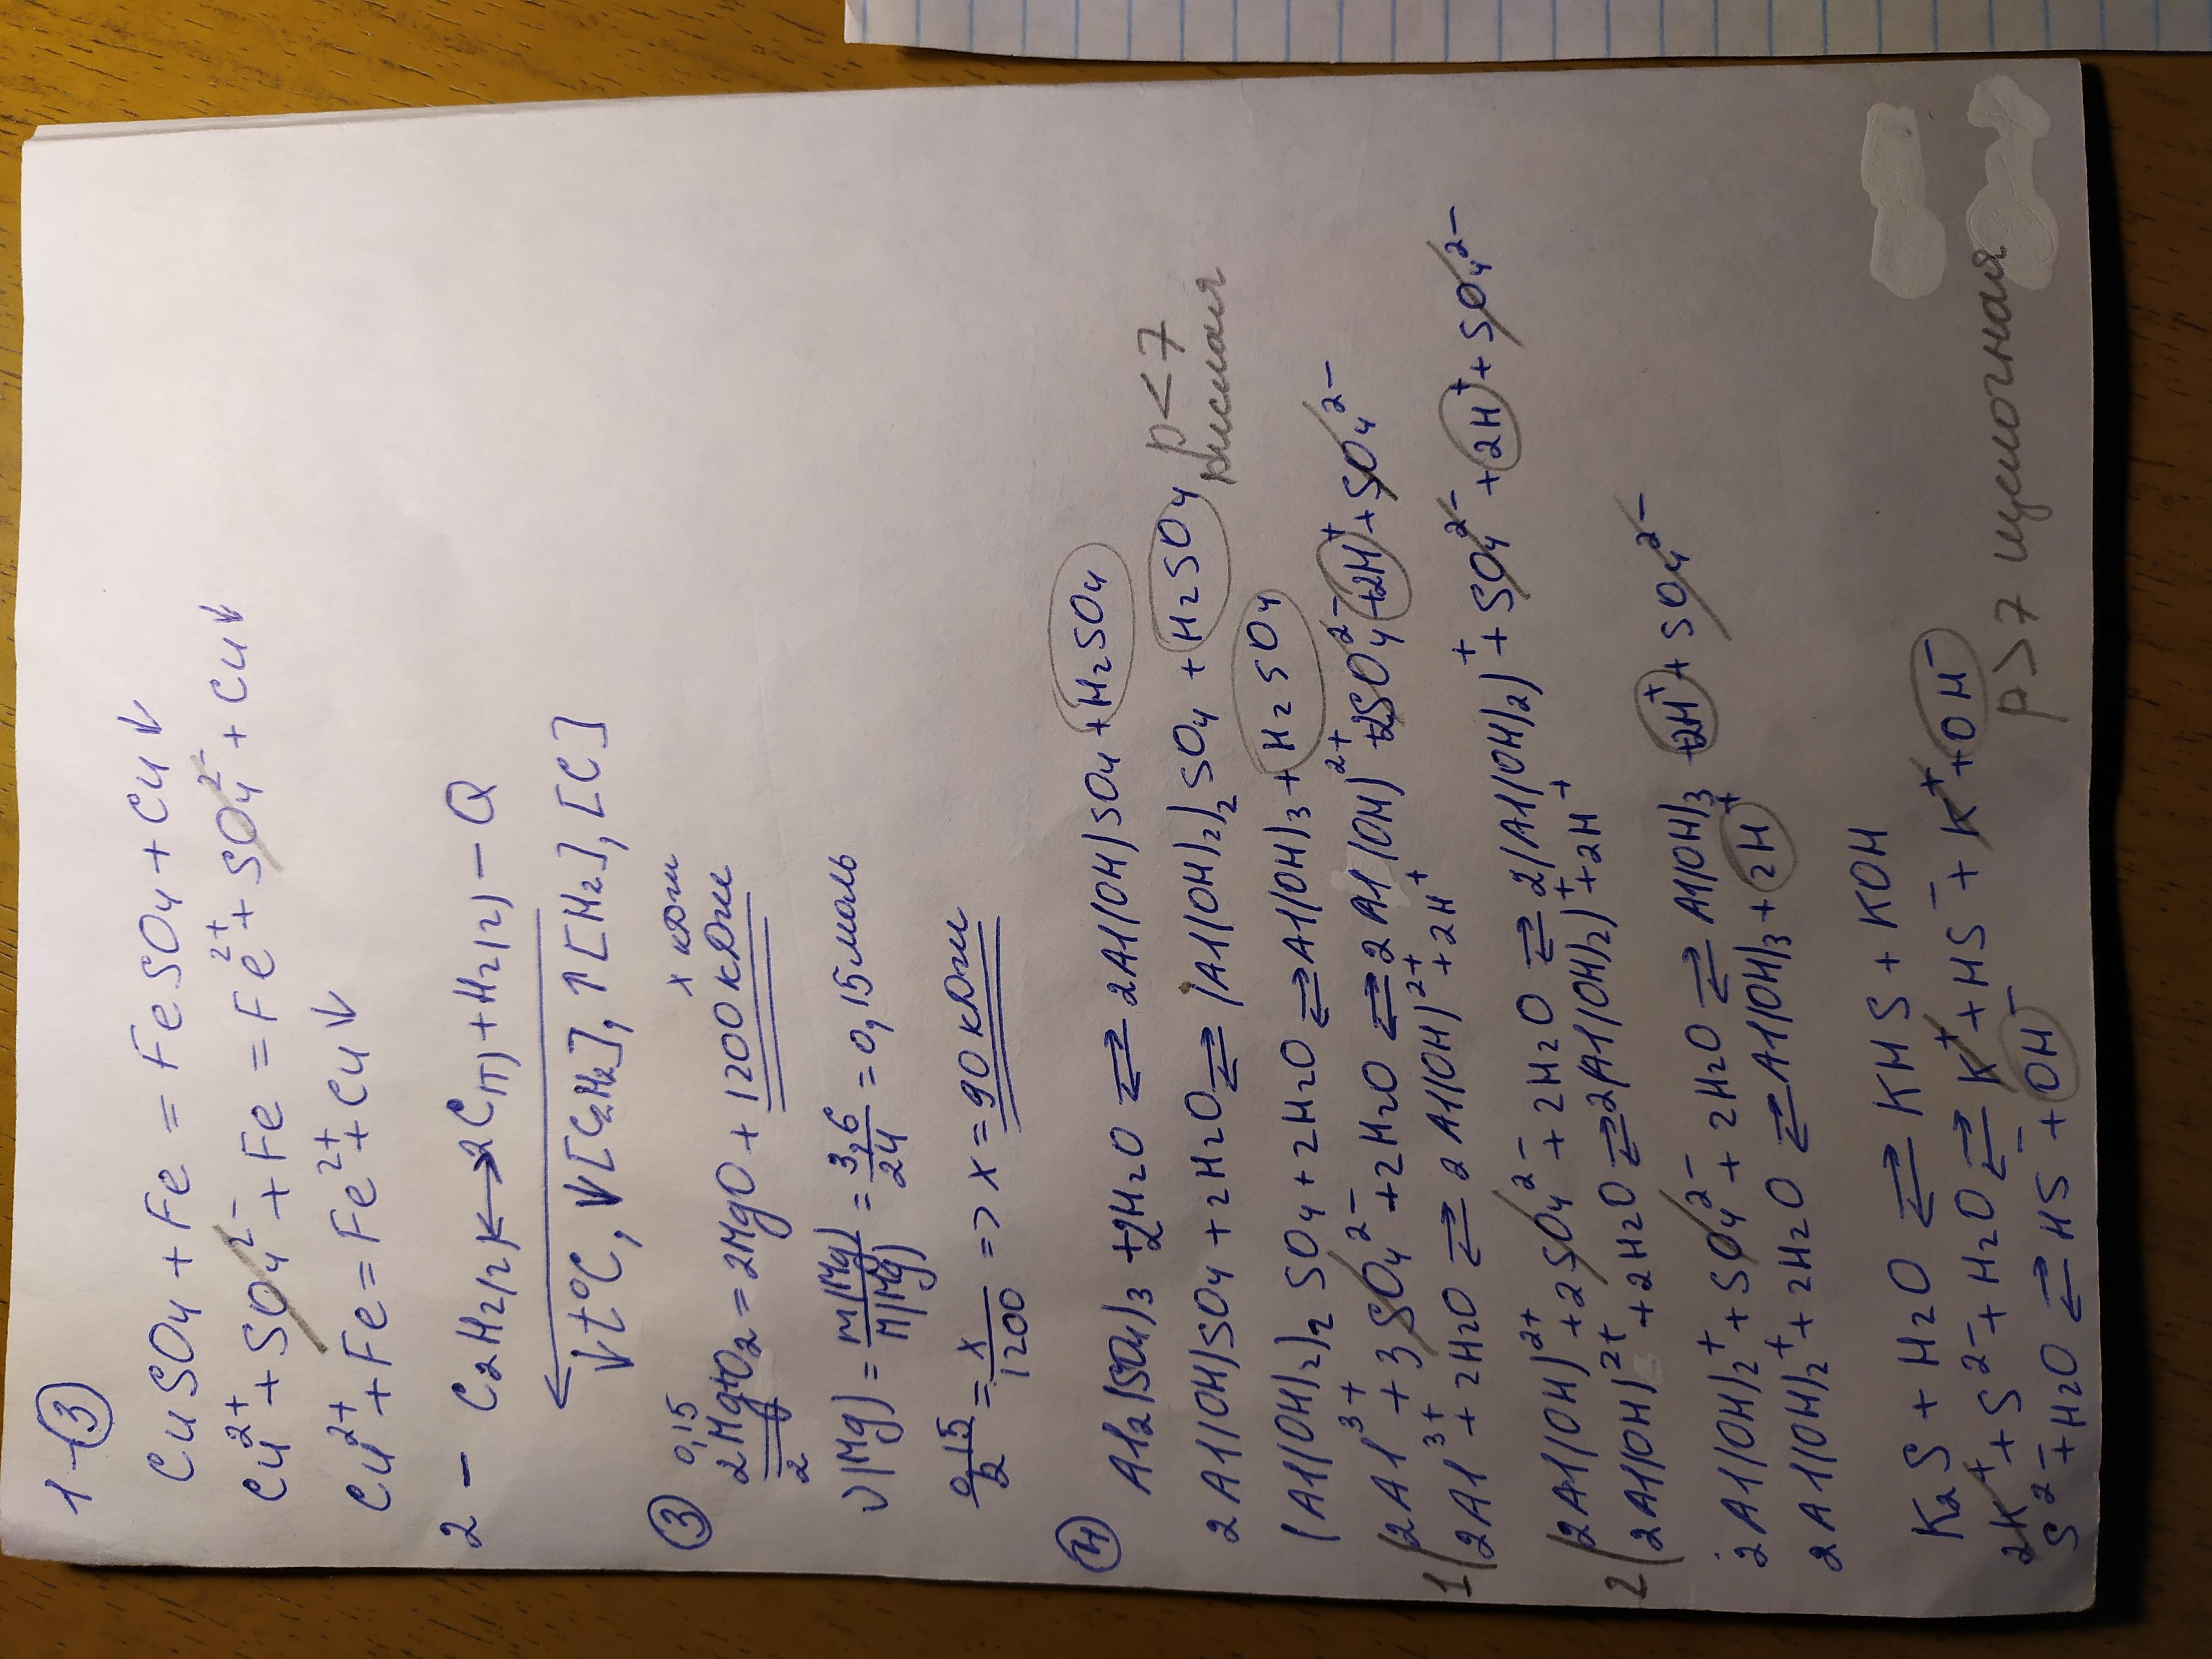 1-③
CuSO4 + Fe = FeSO4 + Cu↓
Cu²⁺ + SO4²⁻ + Fe = Fe²⁺ + SO4²⁻ + Cu↓
Cu²⁺ + Fe = Fe²⁺ + Cu↓
2 - C2H2(г) ⟷ 2C(т) + H2(г) - Q
↓t°C, ↓[C2H2], ↑[H2], [C]
③ 0,15 x кДж
2Mg + O2 = 2MgO + 1200 кДж
2
ν(Mg) = m(Mg)/M(Mg) = 3,6/24 = 0,15 моль
0,15/2 = x/1200 => x = 90 кДж
④ Al2(SO4)3 + 2H2O ⇄ 2Al(OH)SO4 + H2SO4
2Al(OH)SO4 + 2H2O ⇄ (Al(OH)2)2SO4 + H2SO4 p<7
кислая
(Al(OH)2)2SO4 + 2H2O ⇄ Al(OH)3 + H2SO4
1 (2Al³⁺ + 3SO4²⁻ + 2H2O ⇄ 2Al(OH)²⁺ + 2SO4²⁻ + 2H⁺ + SO4²⁻
2Al³⁺ + 2H2O ⇄ 2Al(OH)²⁺ + 2H⁺
2 (2Al(OH)²⁺ + 2SO4²⁻ + 2H2O ⇄ 2(Al(OH)2)⁺ + SO4²⁻ + 2H⁺ + SO4²⁻
2Al(OH)²⁺ + 2H2O ⇄ 2(Al(OH)2)⁺ + 2H⁺
2Al(OH)2⁺ + SO4²⁻ + 2H2O ⇄ Al(OH)3 + 2H⁺ + SO4²⁻
2Al(OH)2⁺ + 2H2O ⇄ Al(OH)3 + 2H⁺
K2S + H2O ⇄ KHS + KOH
2K⁺ + S²⁻ + H2O ⇄ K⁺ + HS⁻ + K⁺ + OH⁻
S²⁻ + H2O ⇄ HS⁻ + OH⁻ p>7 щелочная